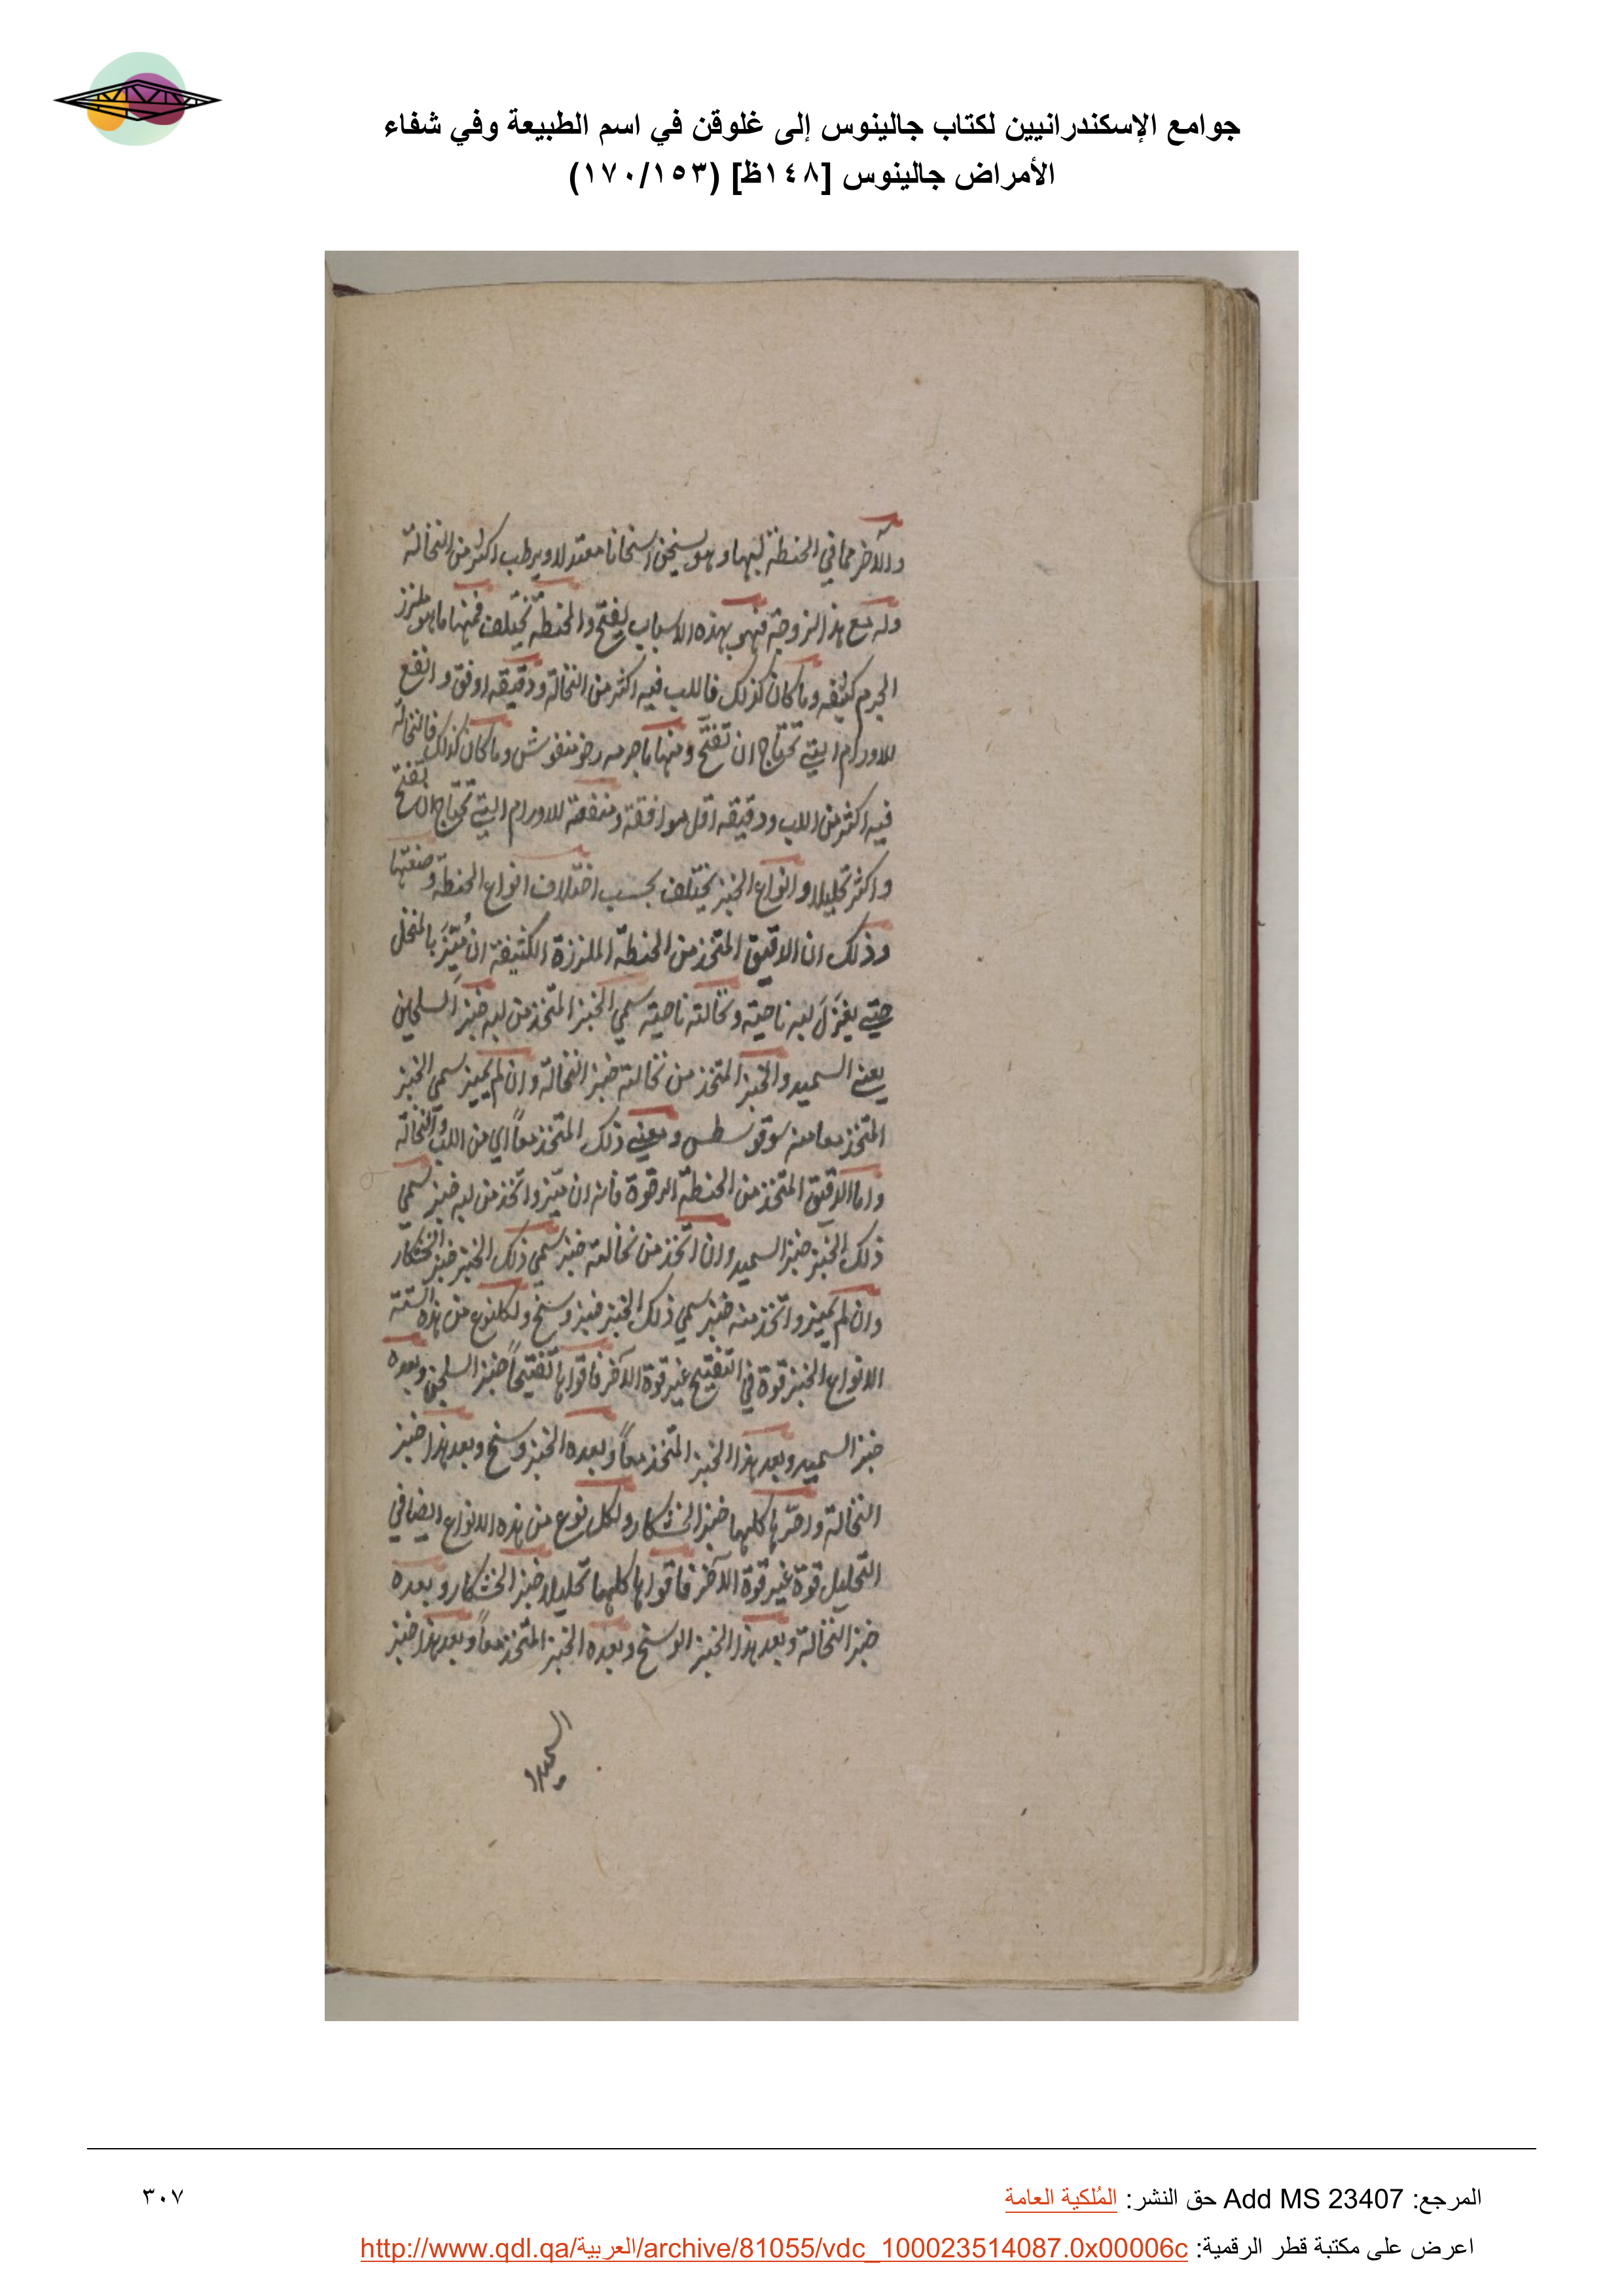 جوامع الإسكندرانيين لكتاب جالينوس إلى غلوقن في اسم الطبيعة وفي شفاء
الأمراض جالينوس [١٤٨ظ] (١٧٠/١٥٣)
والآخر مما في الحنطة لبها وهو يسخن اسخانا معتدلا ويرطب اكثر من النخالة
وله مع هذا لزوجة فهو بهذه الاسباب يفتح والحنطة تختلف فمنها ما هو ملزز
الجرم كثيفه وما كان كذلك فاللب فيه اكثر من النخالة ودقيقه اوفق وانفع
للاورام التي تحتاج ان تفتح ومنها ما جرمه رخو منفوش وما كان كذلك فالنخالة
فيه اكثر من اللب ودقيقه اقل موافقة ومنفعة للاورام التي تحتاج ان تفتح
واكثر تحليلا وانواع الخبز تختلف بحسب اختلاف انواع الحنطة وصنعتها
وذلك ان الدقيق المتخذ من الحنطة الملززة الكثيفة ان مُيّزَ بالمنخل
حتى يعزَلَ لبه ناحية ونخالته ناحية سمي الخبز المتخذ من لبه خبز السلجين
يعني السميد والخبز المتخذ من نخالته خبز النخالة وان لم يميز سمي الخبز
المتخذ معا منه سوقوسطس ومعنى ذلك المتخذ معاً اي من اللب والنخالة
واما الدقيق المتخذ من الحنطة الرخوة فانه ان ميز واتخذ من لبه خبز سمي
ذلك الخبز خبز السميد وان اتخذ من نخالته خبز سمي ذلك الخبز خبز الخشكار
وان لم يميز واتخذ منه خبز سمي ذلك الخبز خبز وسخ ولكل نوع من هذه الستة
الانواع الخبز قوة في التفتيح غير قوة الآخر فاقواها تفتيحاً خبز السلجين وبعده
خبز السميد وبعد هذا الخبز المتخذ معاً وبعده الخبز وسخ وبعد هذا خبز
النخالة وآخرها كلها خبز الخشكار ولكل نوع من هذه الانواع ايضا في
التحليل قوة غير قوة الآخر فاقواها كلها تحليلا خبز الخشكار وبعده
خبز النخالة وبعد هذا الخبز الوسخ وبعده الخبز المتخذ معاً وبعد هذا خبز
السميد و
المرجع: Add MS 23407 حق النشر: المُلكية العامة
٣٠٧
اعرض على مكتبة قطر الرقمية: http://www.qdl.qa/العربية/archive/81055/vdc_100023514087.0x00006c